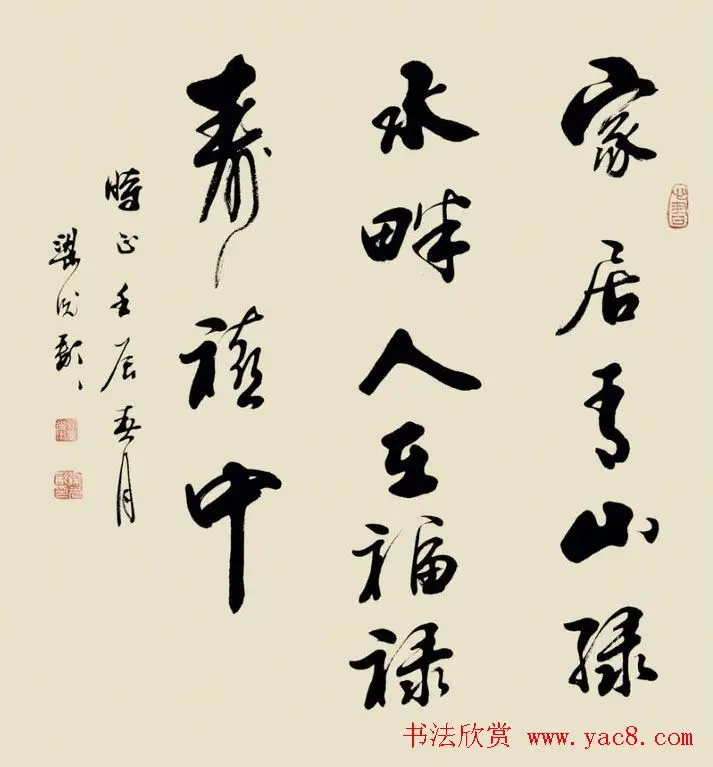 家居青山绿
水畔人在福禄
寿禧中
时正壬辰春月
书法欣赏 www.yac8.com